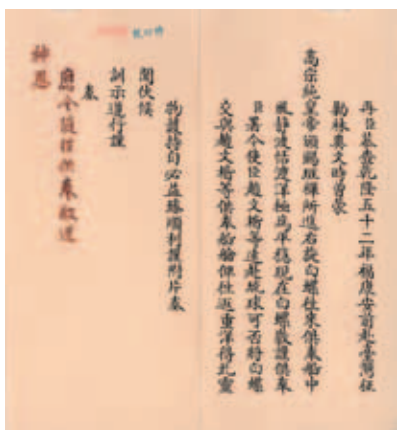 再臣恭查乾隆五十二年福康安前赴臺灣征
勦林爽文時曾蒙
高宗純皇帝頒賜班禪所進右旋白螺往來供奉船中
風靜波恬渡洋極為平穩現在白螺敬謹供奉
臣署今使臣趙文楷等遠赴琉球可否將白螺
交與趙文楷等供奉船艙俾往返重洋得此靈
物護持自必益臻順利謹附片奏
聞伏候
訓示遵行謹
奏
應令護往供奉
神恩